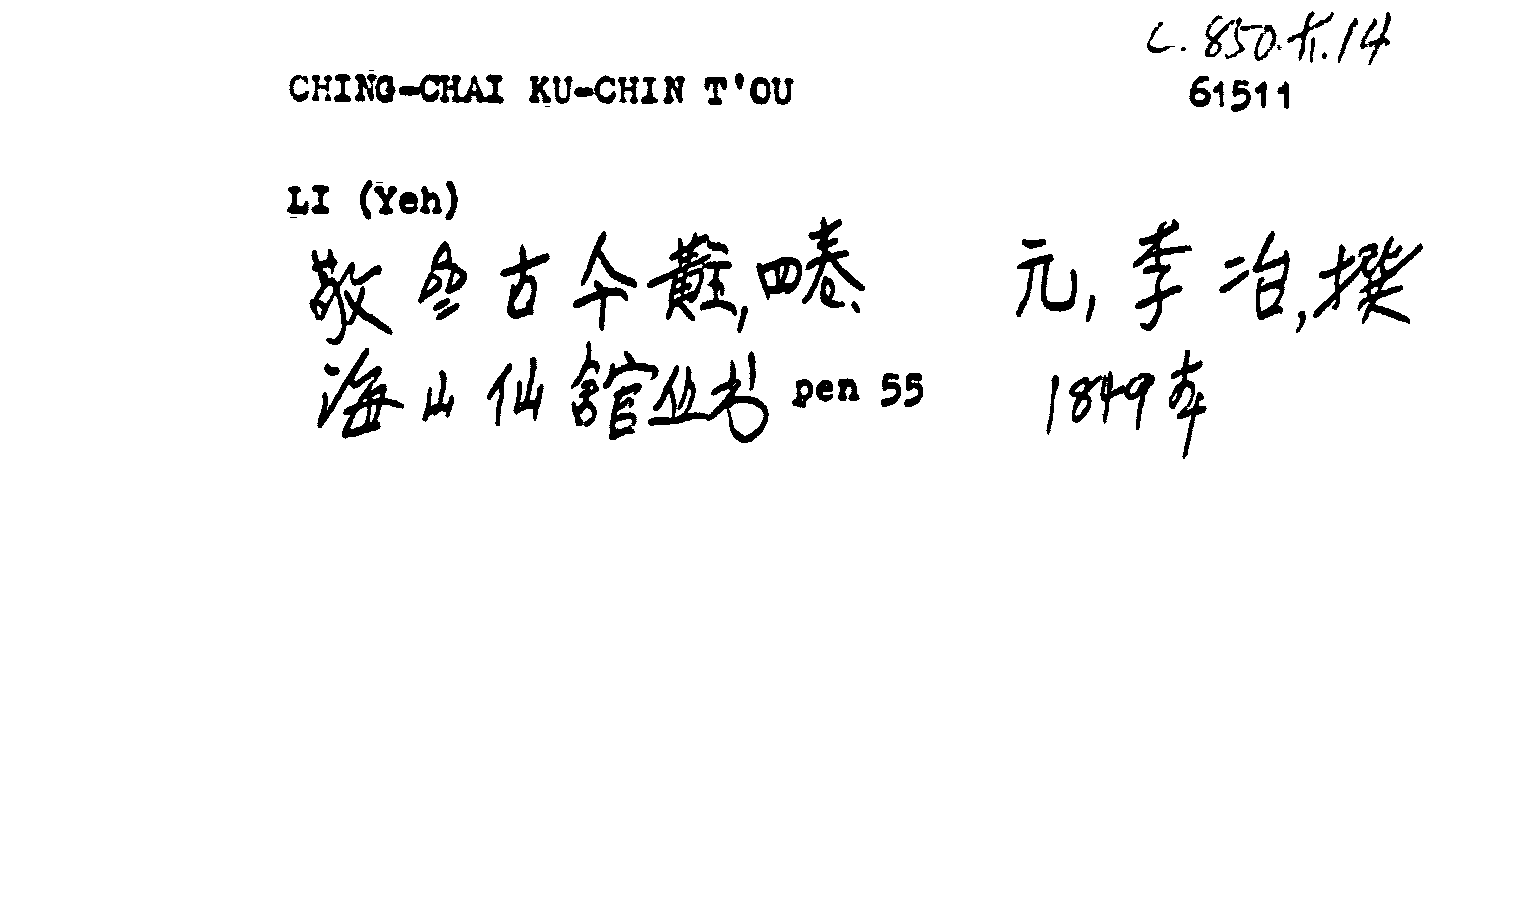 C. 850. 卄. 14
CHING-CHAI KU-CHIN T'OU 61511
LI (Yeh)
敬 古今黈, 四卷、 元, 李冶, 撰
海山仙館丛书 pen 55 1849年